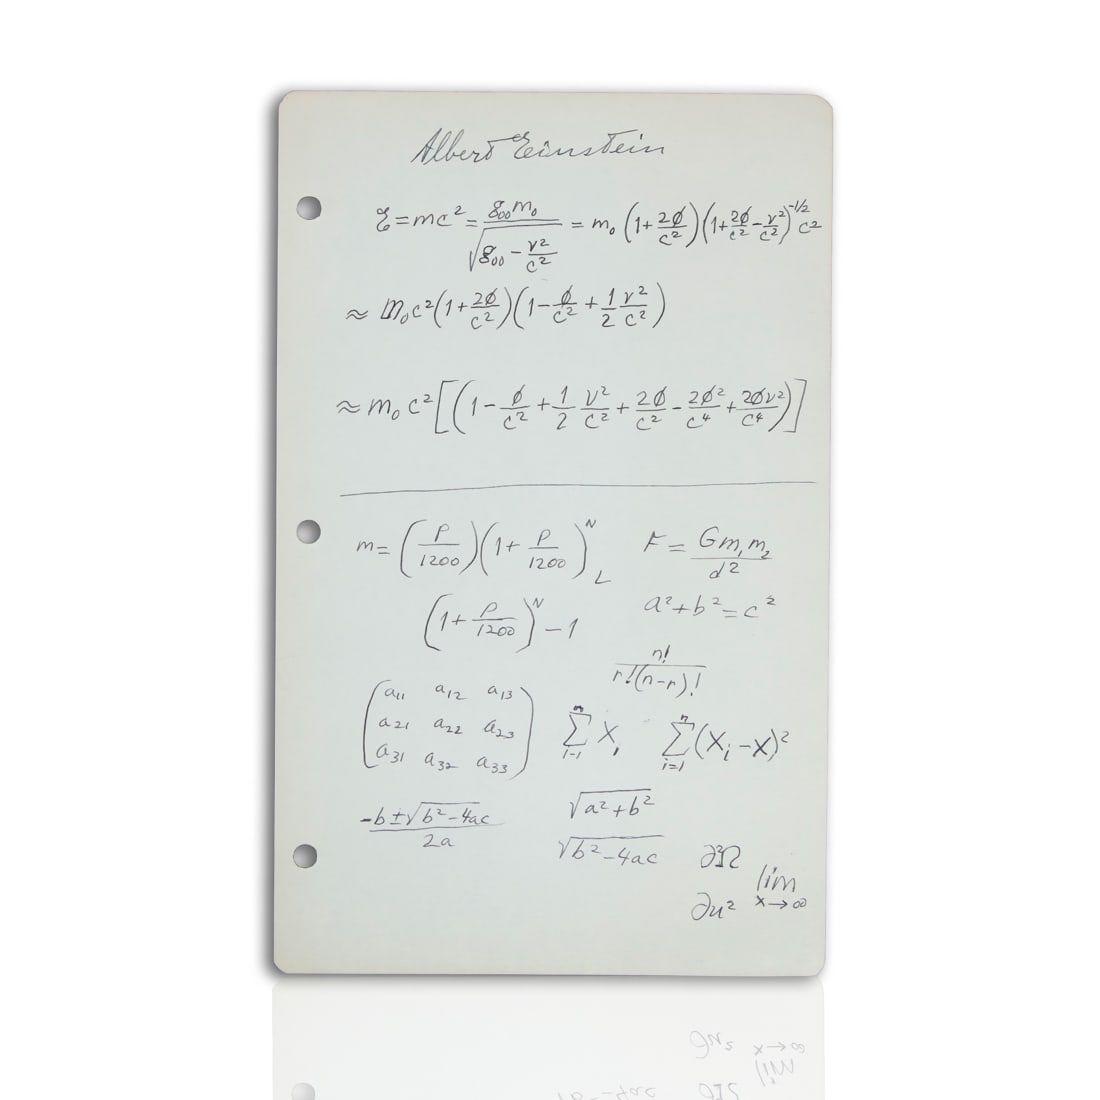 Albert Einstein
E=mc²= g₀₀m₀/√(g₀₀ - v²/c²) = m₀ (1+2ϕ/c²)(1+2ϕ/c²-v²/c²)^-1/2 c²
≈ m₀c²(1+2ϕ/c²)(1-ϕ/c²+1/2 v²/c²)
≈ m₀c²[(1-ϕ/c²+1/2 v²/c²+2ϕ/c²-2ϕ²/c⁴+2ϕv²/c⁴)]
m=(P/1200)(1+P/1200)^N L
(1+P/1200)^N -1
F = Gm₁m₂/d²
a²+b²=c²
n!/r!(n-r)!
(a₁₁ a₁₂ a₁₃
a₂₁ a₂₂ a₂₃
a₃₁ a₃₂ a₃₃)
n Σ i=1 Xᵢ
n Σ i=1 (Xᵢ-x)²
-b±√b²-4ac/2a
√a²+b²
√b²-4ac
∂u²
lim
x→∞